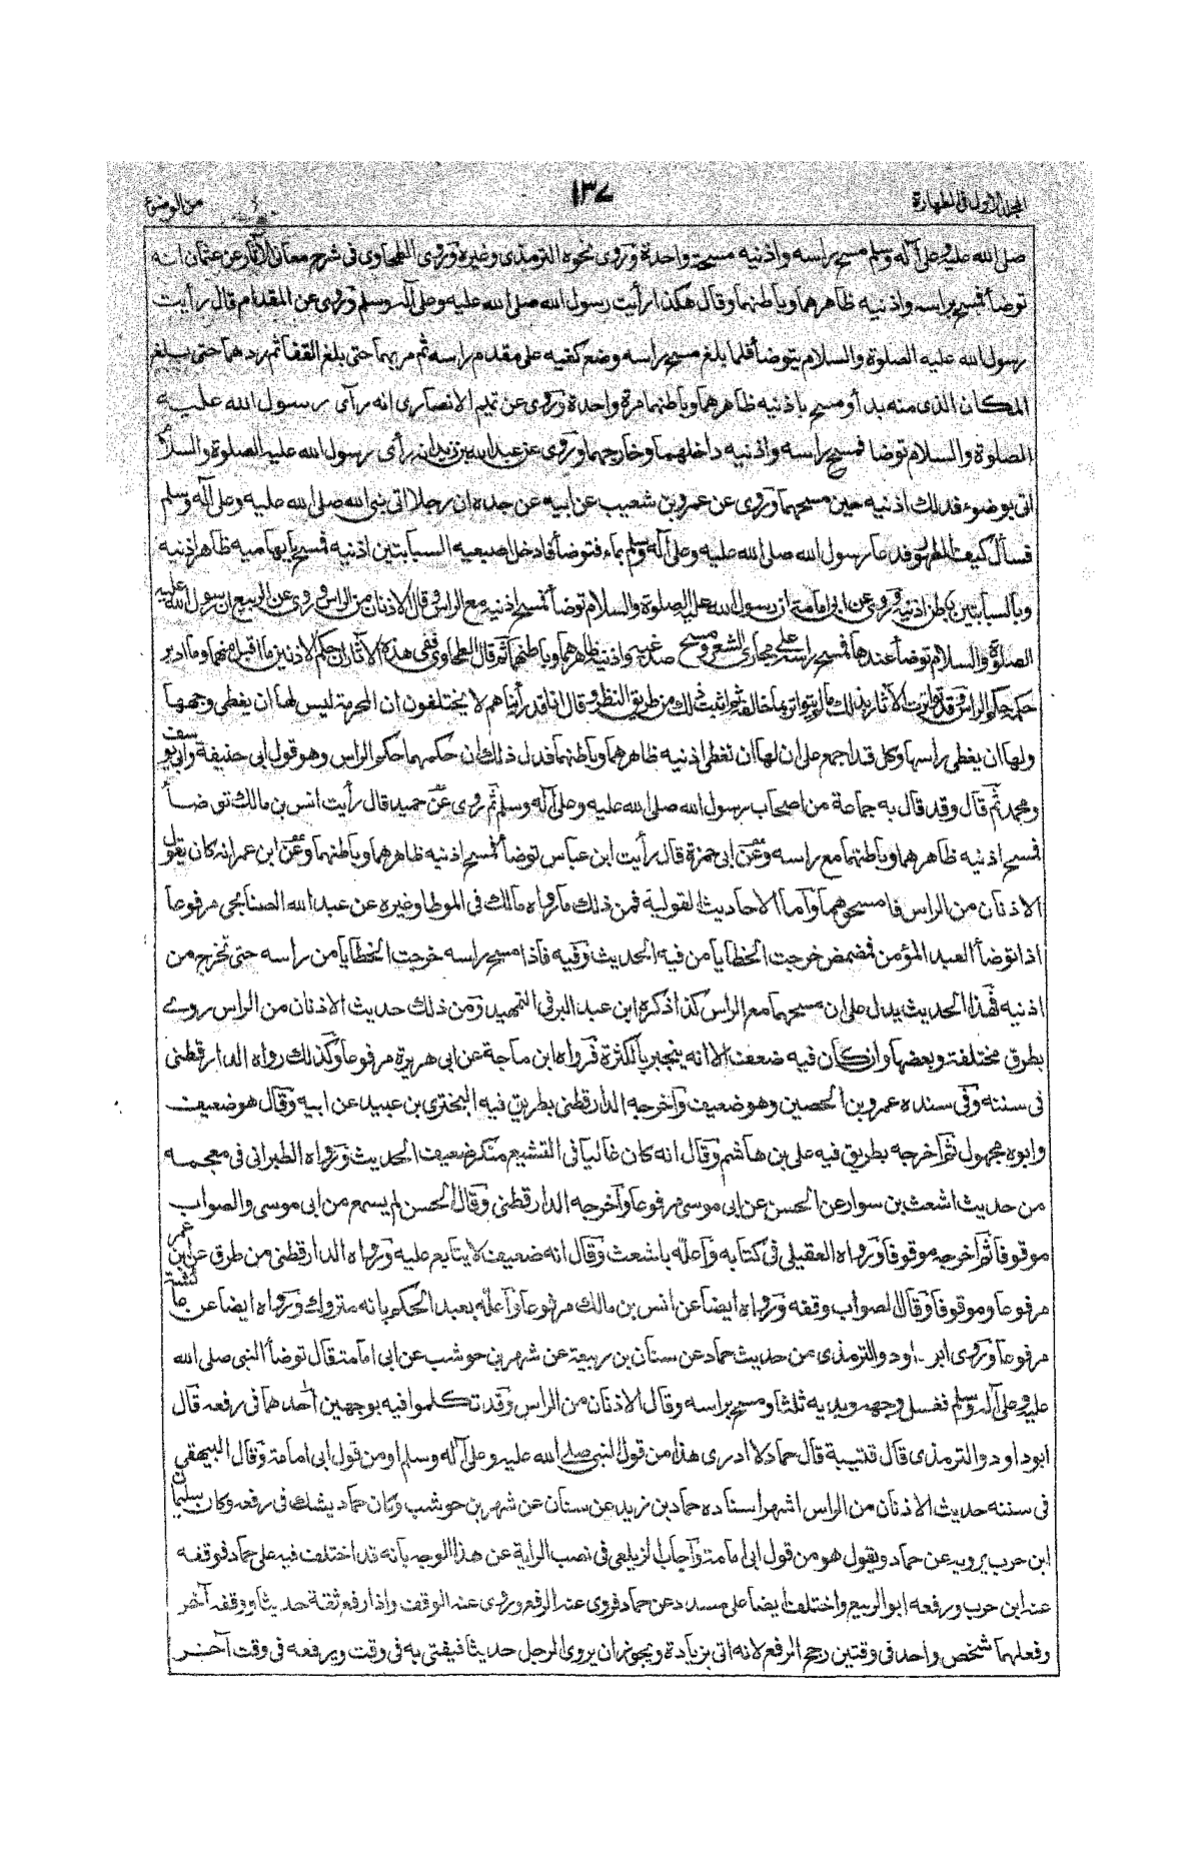 المجلد الاول فى الطهارة
١٣٧
من الوضوء
صلى الله عليه وعلى آله وسلم مسح براسه واذنيه مسحة واحدة وروى نحوه الترمذى وغيره وروى الطحاوى فى شرح معانى الآثار عن عثمان انه
توضأ فمسح براسه واذنيه ظاهرهما وباطنهما وقال هكذا رأيت رسول الله صلى الله عليه وعلى آله وسلم وروى عن المقدام قال رأيت
رسول الله عليه الصلوة والسلام يتوضأ فلما بلغ مسح راسه وضع كفيه على مقدم راسه ثم مر بهما حتى بلغ القفا ثم ردهما حتى بلغ
المكان الذى منه بدأ ومسح باذنيه ظاهرهما وباطنهما مرة واحدة وروى عن تميم الانصارى انه رآى رسول الله عليه
الصلوة والسلام توضا فمسح راسه واذنيه داخلهما وخارجهما وروى عن عبد الله بن زيد انه رأى رسول الله عليه الصلوة والسلام
اتى بوضوء فدلك اذنيه حين مسحهما وروى عن عمرو بن شعيب عن ابيه عن جده ان رجلا اتى نبى الله صلى الله عليه وعلى آله وسلم
فسأل كيف الطهور فدعا رسول الله صلى الله عليه وعلى آله وسلم بماء فتوضأ فادخل اصبعيه السبابتين اذنيه فمسح بابهاميه ظاهر اذنيه
وبالسبابتين باطن اذنيه وروى عن ابى امامة ان رسول الله عليه الصلوة والسلام توضأ فمسح اذنيه مع الراس وقال الاذنان من الراس وروى عن الربيع ان رسول الله عليه
الصلوة والسلام توضأ عندها فمسح راسه على مجارى الشعر ومسح صدغيه واذنيه ظاهرهما وباطنهما ثم قال الطحاوى ففى هذه الآثار ان حكم الاذنين ما اقبل منهما وما ادبر
حكمه حكم الراس وقد تواترت الآثار بذلك ما لم يتواتر بما خالفه ثم اثبت ذلك من طريق النظر وقال انا قد رأيناهم لا يختلفون ان المحرمة ليس لها ان يغطى وجهها
ولها ان يغطى راسها وكل قد اجمع على ان لها ان تغطى اذنيه ظاهرهما وباطنهما فدل ذلك ان حكمهما حكم الراس وهو قول ابى حنيفة وابى يوسف
ومحمد ثم قال وقد قال به جماعة من اصحاب رسول الله صلى الله عليه وعلى آله وسلم ثم روى عن حميد قال رأيت انس بن مالك توضأ
فمسح اذنيه ظاهرهما وباطنهما مع راسه وعن ابى حمزة قال رأيت ابن عباس توضأ فمسح اذنيه ظاهرهما وباطنهما وعن ابن عمر انه كان يقول
الاذنان من الراس فامسحوهما واما الاحاديث القولية فمن ذلك ما رواه مالك فى الموطا وغيره عن عبد الله الصنابحى مرفوعا
اذا توضأ العبد المؤمن فمضمض خرجت الخطايا من فيه الحديث وفيه فاذا مسح راسه خرجت الخطايا من راسه حتى تخرج من
اذنيه فهذا الحديث يدل على ان مسحهما مع الراس كذا ذكره ابن عبد البر فى التمهيد ومن ذلك حديث الاذنان من الراس روى
بطرق مختلفة وبعضها وان كان فيه ضعف الا انه ينجبر بالكثرة فرواه ابن ماجة عن ابى هريرة مرفوعا وكذلك رواه الدارقطنى
فى سننه وفى سنده عمرو بن الحصين وهو ضعيف واخرجه الدارقطنى بطريق فيه البخترى بن عبيد عن ابيه وقال هو ضعيف
وابوه مجهول ثم اخرجه بطريق فيه على بن هاشم وقال انه كان غاليا فى التشيع منكر ضعيف الحديث ورواه الطبرانى فى معجمه
من حديث اشعث بن سوار عن الحسن عن ابى موسى مرفوعا واخرجه الدارقطنى وقال الحسن لم يسمع من ابى موسى والصواب
موقوف ثم اخرجه موقوفا ورواه العقيلى فى كتابه واعله باشعث وقال انه ضعيف لا يتابع عليه ورواه الدارقطنى من طرق عن ابن عمر
مرفوعا وموقوفا وقال الصواب وقفه ورواه ايضا عن انس بن مالك مرفوعا واعله بعبد الحكم بانه متروك ورواه ايضا عن عائشة
مرفوعا وروى ابو داود والترمذى من حديث حماد عن سنان بن ربيعة عن شهر بن حوشب عن ابى امامة قال توضأ النبى صلى الله
عليه وعلى آله وسلم فغسل وجهه ويديه ثلثا ومسح براسه وقال الاذنان من الراس وقد تكلموا فيه بوجهين احدهما فى رفعه قال
ابو داود والترمذى قال قتيبة قال حماد لا ادرى هذا من قول النبى صلى الله عليه وعلى آله وسلم او من قول ابى امامة وقال البيهقى
فى سننه حديث الاذنان من الراس اشهر اسناده حماد بن زيد عن سنان عن شهر بن حوشب وكان حماد يشك فى رفعه وكان سليمان
ابن حرب يرويه عن حماد ويقول هو من قول ابى امامة واجاب الزيلعى فى نصب الراية عن هذا الوجه بانه قد اختلف فيه على حماد فوقفه
عنه ابن حرب ورفعه ابو الربيع واختلف ايضا على مسدد عن حماد فروى عنه الرفع وروى عنه الوقف واذا رفع ثقة حديثا ووقفه آخر
وفعلهما شخص واحد فى وقتين رجح الرفع لانه اتى بزيادة ويجوز ان يروى الرجل حديثا فيفتى به فى وقت ويرفعه فى وقت آخر